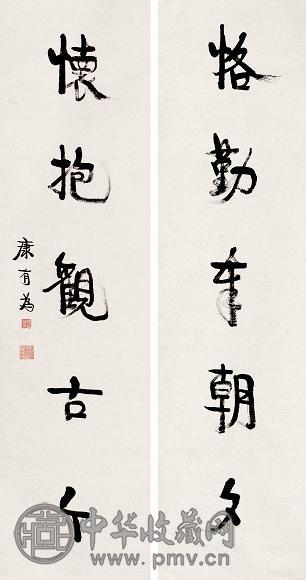 恪勤在朝夕
懷抱觀古今
康有為
中华收藏网
www.pmv.cn